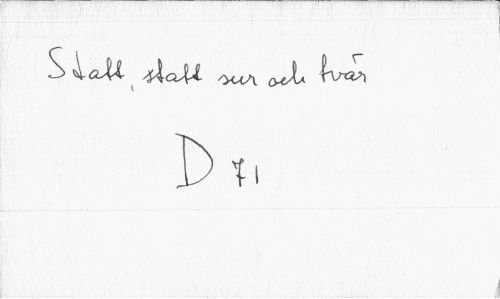 Statt, statt sur och tvär
D 71